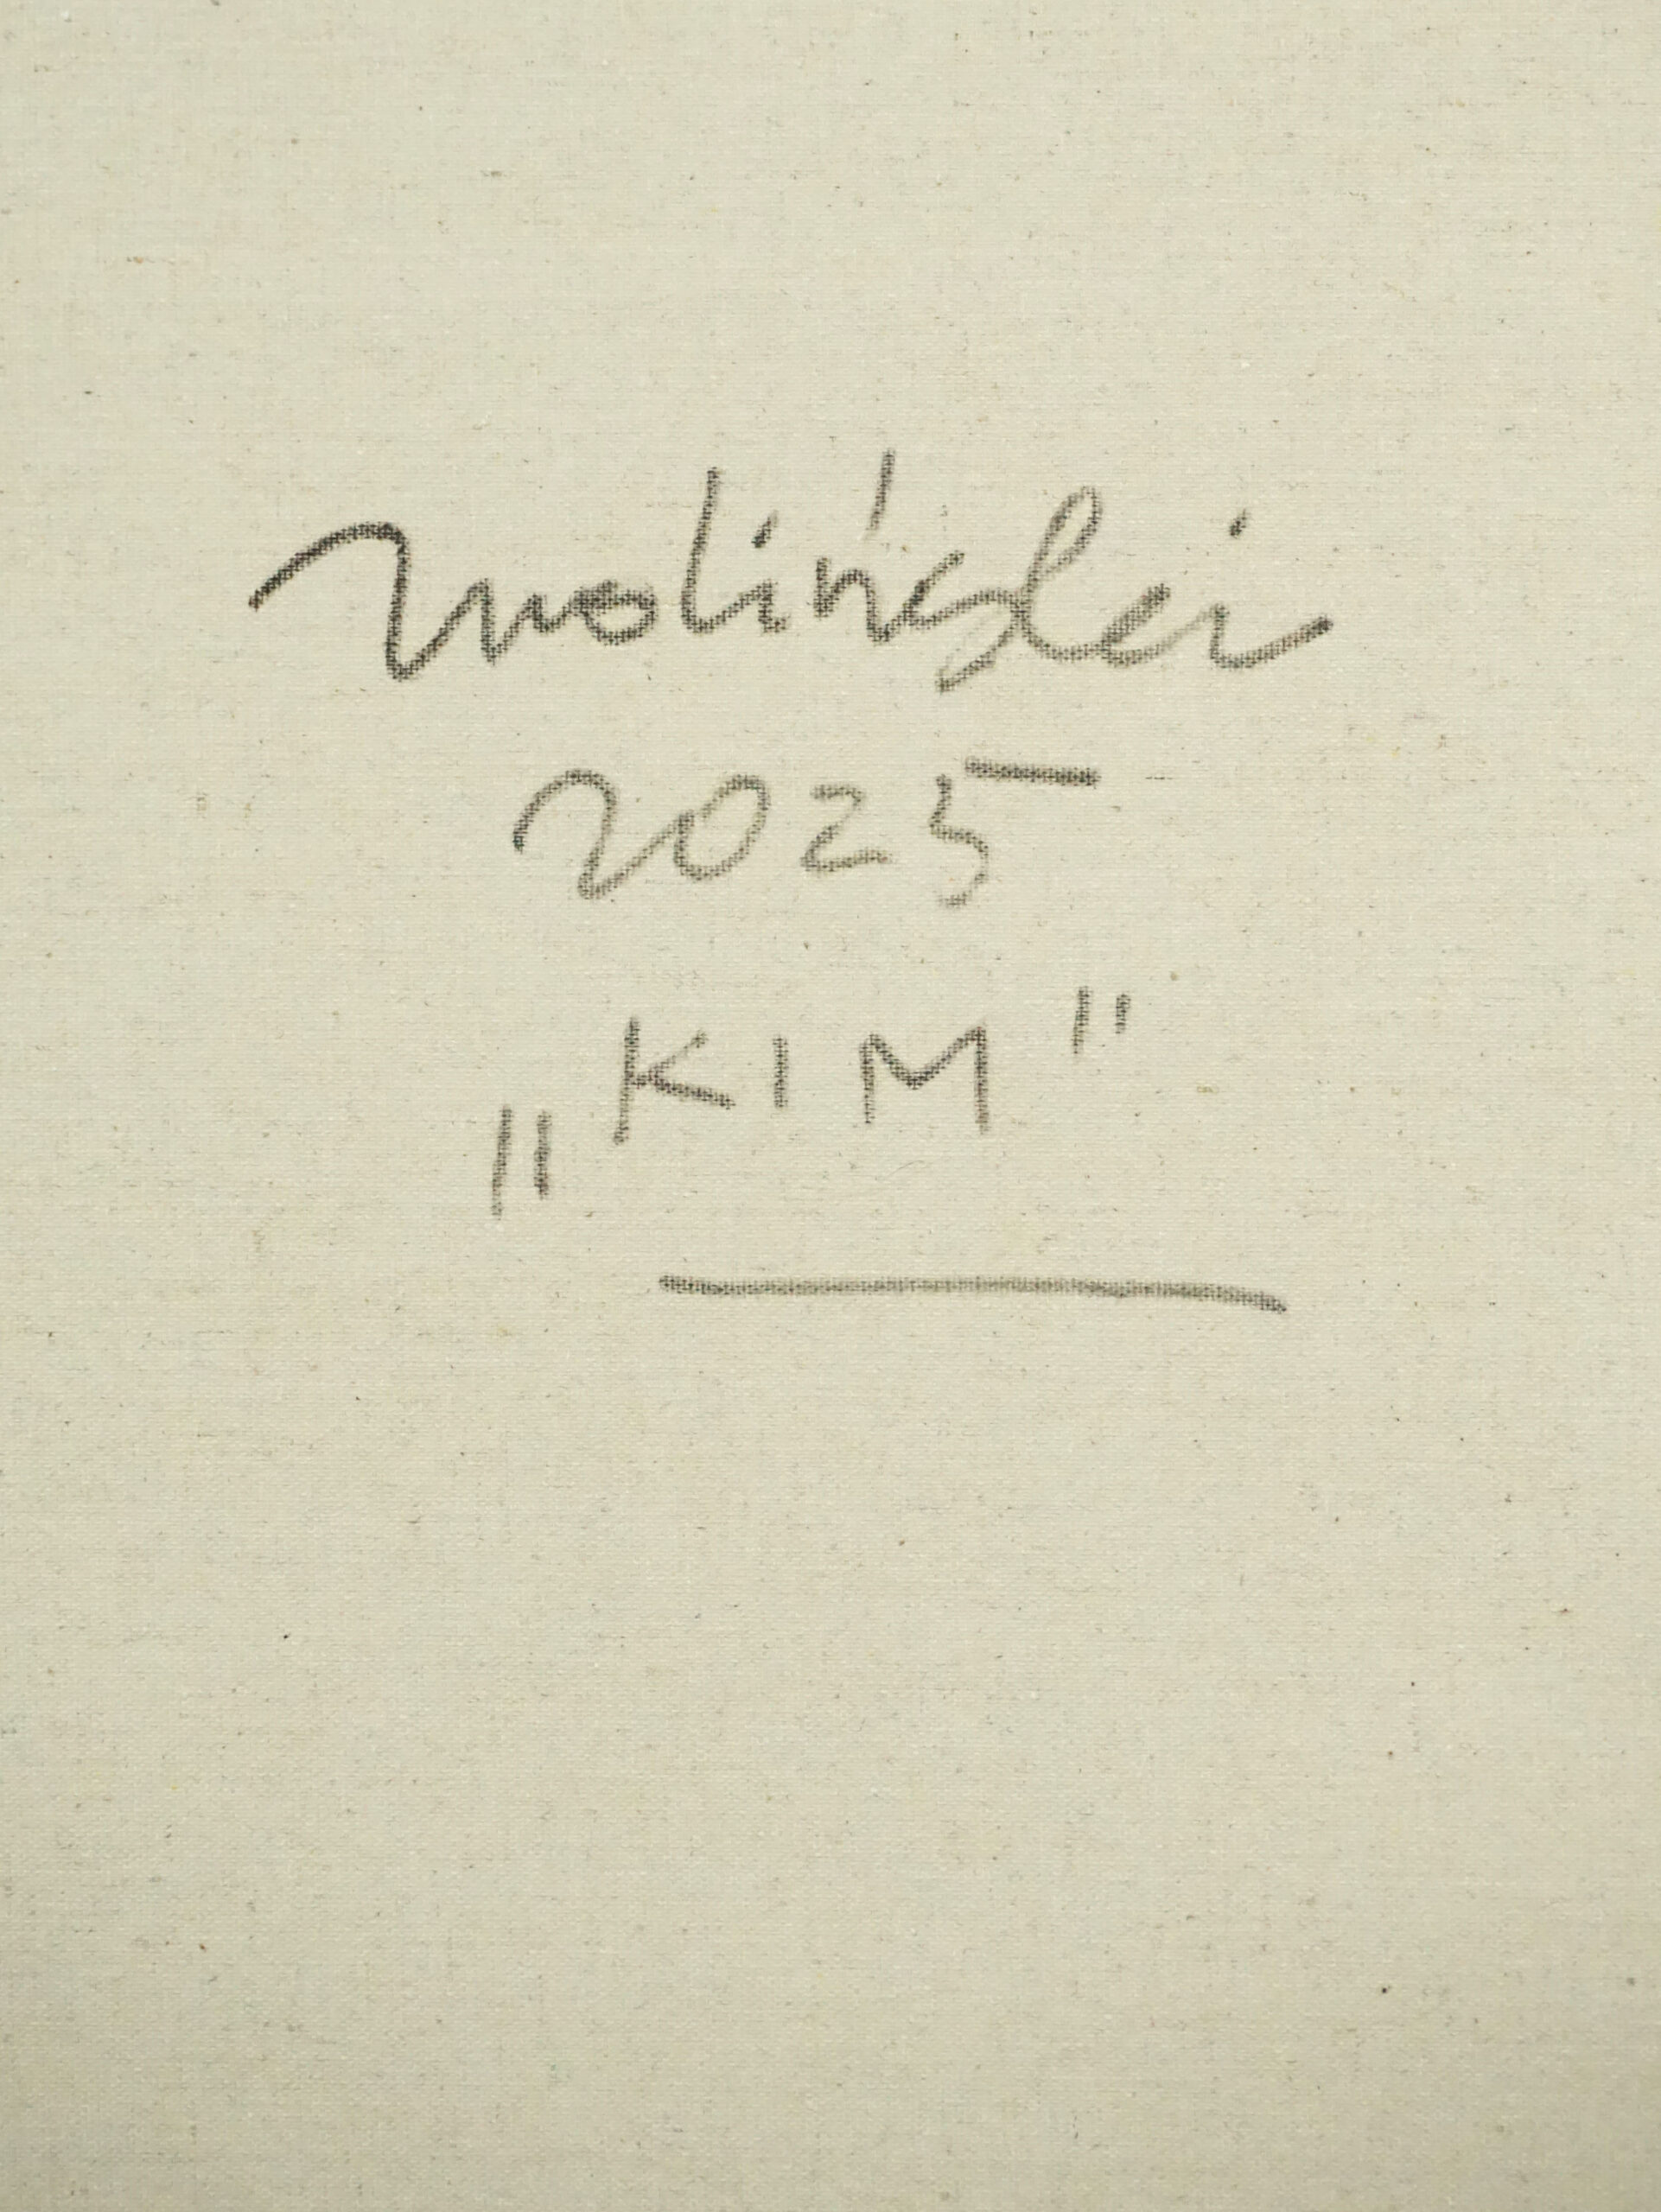 Woliński
2025
„KIM"